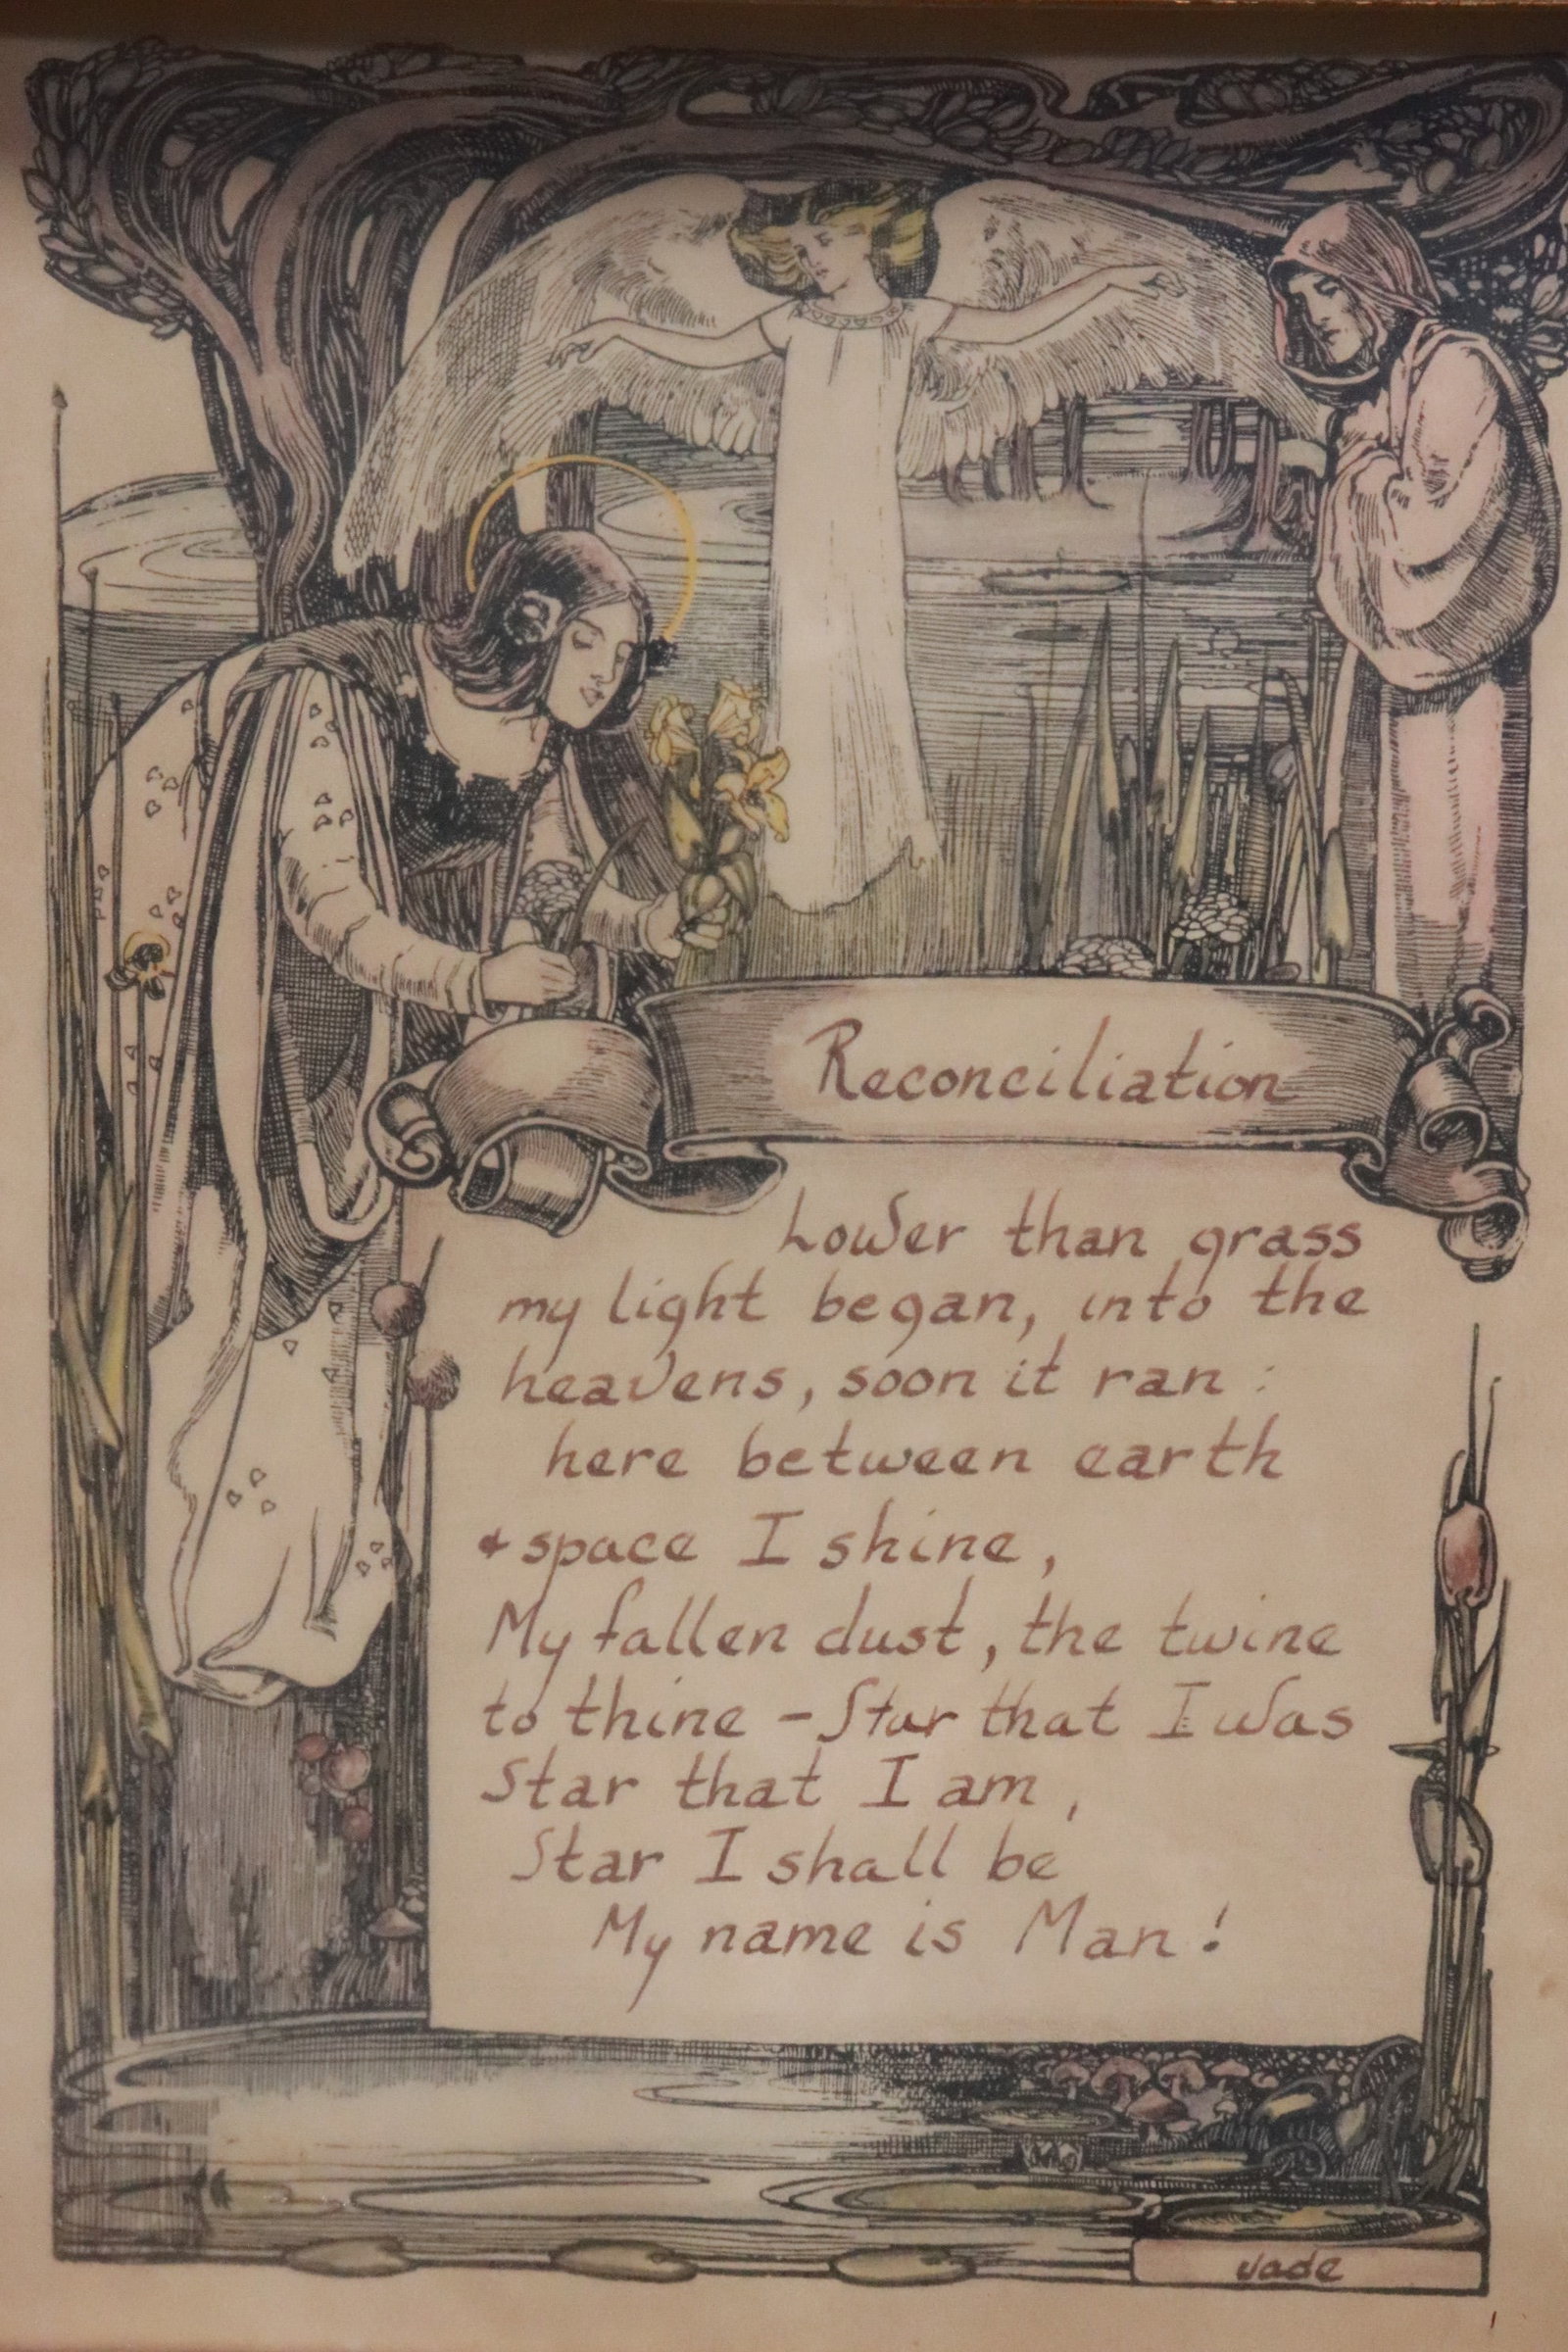 Reconciliation
Lower than grass
my light began, into the
heavens, soon it ran :
here between earth
& space I shine,
My fallen dust, the twine
to thine - Star that I was
Star that I am,
Star I shall be
My name is Man!
Jade